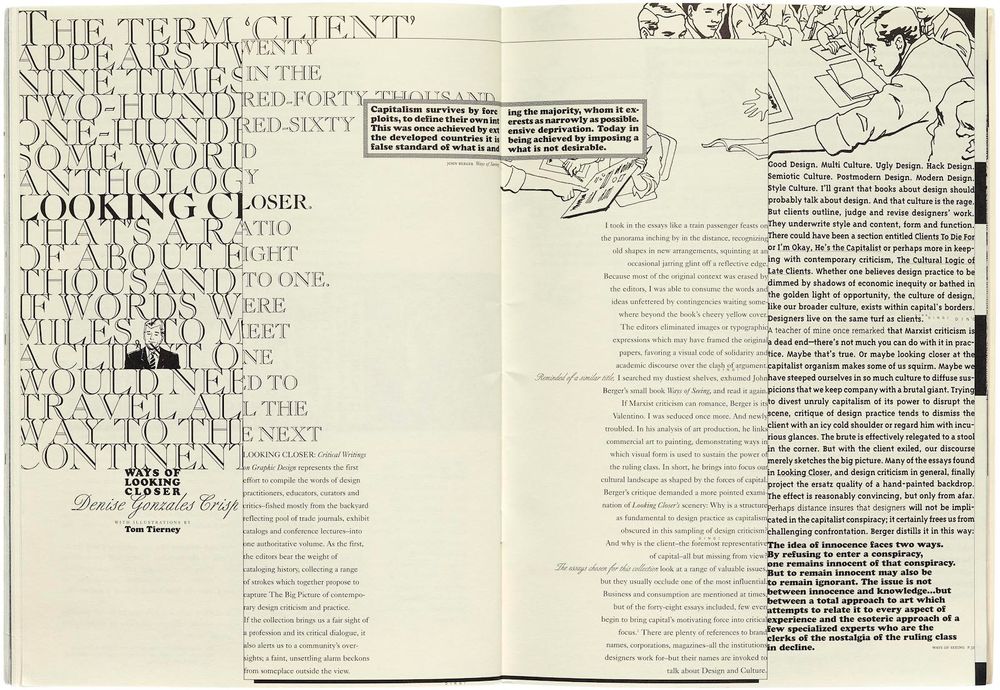 THE TERM ‘CLIENT’
APPEARS TWENTY
NINE TIMES IN THE
TWO-HUNDRED-FORTY THOUSAND
ONE-HUNDRED-SIXTY
SOME WORD
ANTHOLOGY
LOOKING CLOSER.
THAT'S A RATIO
OF ABOUT EIGHT
THOUSAND TO ONE.
IF WORDS WERE
MILES TO MEET
A CLIENT ONE
WOULD NEED TO
TRAVEL ALL THE
WAY TO THE NEXT
CONTINENT
WAYS OF
LOOKING
CLOSER
Denise Gonzales Crisp
WITH ILLUSTRATIONS BY
Tom Tierney
LOOKING CLOSER: Critical Writings
on Graphic Design represents the first
effort to compile the words of design
practitioners, educators, curators and
critics–fished mostly from the backyard
reflecting pool of trade journals, exhibit
catalogs and conference lectures–into
one authoritative volume. As the first,
the editors bear the weight of
cataloging history, collecting a range
of strokes which together propose to
capture The Big Picture of contempo-
rary design criticism and practice.
If the collection brings us a fair sight of
a profession and its critical dialogue, it
also alerts us to a community's over-
sights; a faint, unsettling alarm beckons
from someplace outside the view.
Capitalism survives by forcing the majority, whom it ex-
ploits, to define their own interests as narrowly as possible.
This was once achieved by extensive deprivation. Today in
the developed countries it is being achieved by imposing a
false standard of what is and what is not desirable.
JOHN BERGER Ways of Seeing
I took in the essays like a train passenger feasts on
the panorama inching by in the distance, recognizing
old shapes in new arrangements, squinting at an
occasional jarring glint off a reflective edge.
Because most of the original context was erased by
the editors, I was able to consume the words and
ideas unfettered by contingencies waiting some-
where beyond the book's cheery yellow cover.
The editors eliminated images or typographic
expressions which may have framed the original
papers, favoring a visual code of solidarity and
academic discourse over the clash of argument.
Reminded of a similar title, I searched my dustiest shelves, exhumed John
Berger's small book Ways of Seeing, and read it again.
If Marxist criticism can romance, Berger is its
Valentino. I was seduced once more. And newly
troubled. In his analysis of art production, he links
commercial art to painting, demonstrating ways in
which visual form is used to sustain the power of
the ruling class. In short, he brings into focus our
cultural landscape as shaped by the forces of capital.
Berger's critique demanded a more pointed exami-
nation of Looking Closer's scenery: Why is a structure
as fundamental to design practice as capitalism
obscured in this sampling of design criticism?
And why is the client–the foremost representative
of capital–all but missing from view?
The essays chosen for this collection look at a range of valuable issues,
but they usually occlude one of the most influential.
Business and consumption are mentioned at times,
but of the forty-eight essays included, few even
begin to bring capital's motivating force into critical
focus. There are plenty of references to brand
names, corporations, magazines–all the institutions
designers work for–but their names are invoked to
talk about Design and Culture.
Good Design. Multi Culture. Ugly Design. Hack Design.
Semiotic Culture. Postmodern Design. Modern Design.
Style Culture. I'll grant that books about design should
probably talk about design. And that culture is the rage.
But clients outline, judge and revise designers' work.
They underwrite style and content, form and function.
There could have been a section entitled Clients To Die For
or I'm Okay, He's the Capitalist or perhaps more in keep-
ing with contemporary criticism, The Cultural Logic of
Late Clients. Whether one believes design practice to be
dimmed by shadows of economic inequity or bathed in
the golden light of opportunity, the culture of design,
like our broader culture, exists within capital's borders.
Designers live on the same turf as clients.
A teacher of mine once remarked that Marxist criticism is
a dead end—there's not much you can do with it in prac-
tice. Maybe that's true. Or maybe looking closer at the
capitalist organism makes some of us squirm. Maybe we
have steeped ourselves in so much culture to diffuse sus-
picions that we keep company with a brutal giant. Trying
to divest unruly capitalism of its power to disrupt the
scene, critique of design practice tends to dismiss the
client with an icy cold shoulder or regard him with incu-
rious glances. The brute is effectively relegated to a stool
in the corner. But with the client exiled, our discourse
merely sketches the big picture. Many of the essays found
in Looking Closer, and design criticism in general, finally
project the ersatz quality of a hand-painted backdrop.
The effect is reasonably convincing, but only from afar.
Perhaps distance insures that designers will not be impli-
cated in the capitalist conspiracy; it certainly frees us from
challenging confrontation. Berger distills it in this way:
The idea of innocence faces two ways.
By refusing to enter a conspiracy,
one remains innocent of that conspiracy.
But to remain innocent may also be
to remain ignorant. The issue is not
between innocence and knowledge...but
between a total approach to art which
attempts to relate it to every aspect of
experience and the esoteric approach of a
few specialized experts who are the
clerks of the nostalgia of the ruling class
in decline.
WAYS OF SEEING P.32